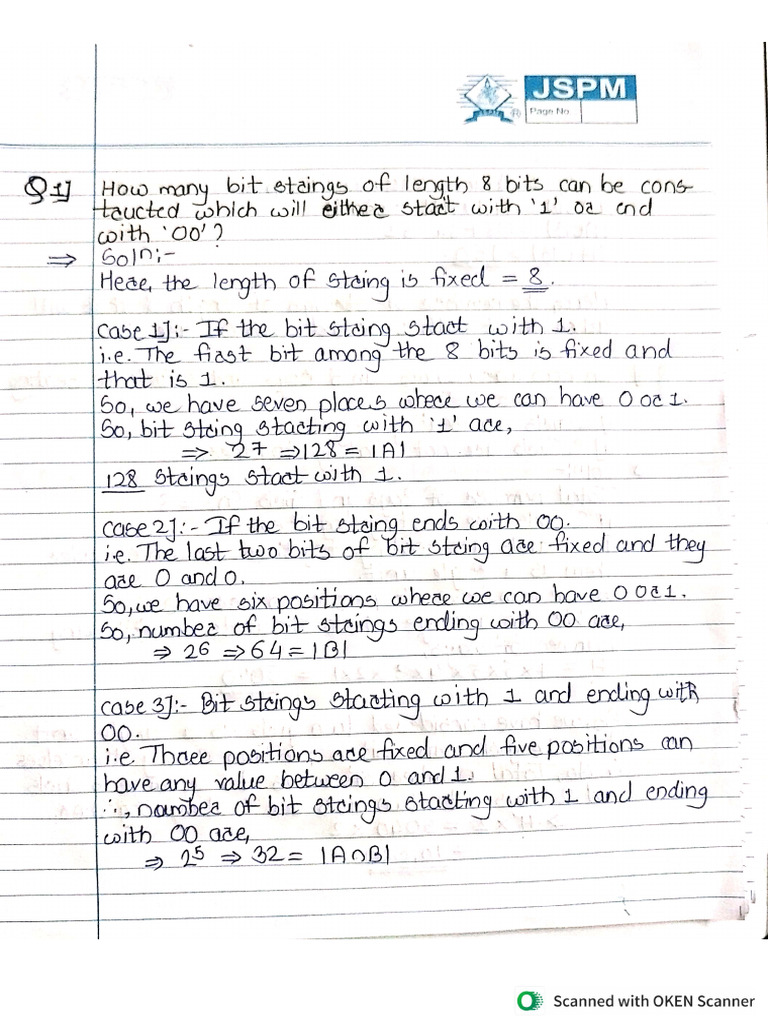 JSPM
Page No.
Q 1] How many bit strings of length 8 bits can be cons-
tructed which will either start with '1' or end
with '00'?
⇒ Soln:-
Here, the length of string is fixed = 8.
Case 1]:- If the bit string start with 1.
i.e. The first bit among the 8 bits is fixed and
that is 1.
So, we have seven places where we can have 0 or 1.
So, bit string starting with '1' are,
⇒ 2⁷ ⇒ 128 = |A|
128 strings start with 1.
Case 2]:- If the bit string ends with 00.
i.e. The last two bits of bit string are fixed and they
are 0 and 0.
So, we have six positions where we can have 0 or 1.
So, number of bit strings ending with 00 are,
⇒ 2⁶ ⇒ 64 = |B|
Case 3]:- Bit strings starting with 1 and ending with
00.
i.e. Three positions are fixed and five positions can
have any value between 0 and 1.
∴, number of bit strings starting with 1 and ending
with 00 are,
⇒ 2⁵ ⇒ 32 = |A∩B|
Scanned with OKEN Scanner